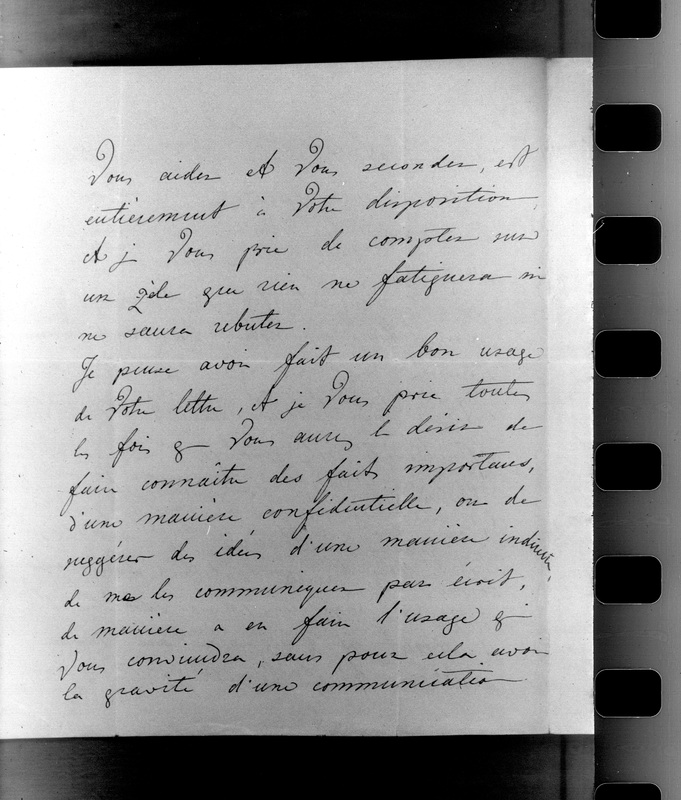 Vous aider et Vous seconder, est
entièrement à Votre disposition,
et je Vous prie de compter sur
un zèle que rien ne fatiguera ni
ne saura rebuter.
Je pense avoir fait un bon usage
de Votre lettre, et je Vous prie toutes
les fois q Vous aurez le désir de
faire connaître des faits importans,
d'une manière confidentielle, ou de
suggérer des idées d'une manière indirecte,
de me les communiquer par écrit,
de manière a en faire l'usage q
Vous conviendra, sans pour cela avoir
la gravité d'une communication